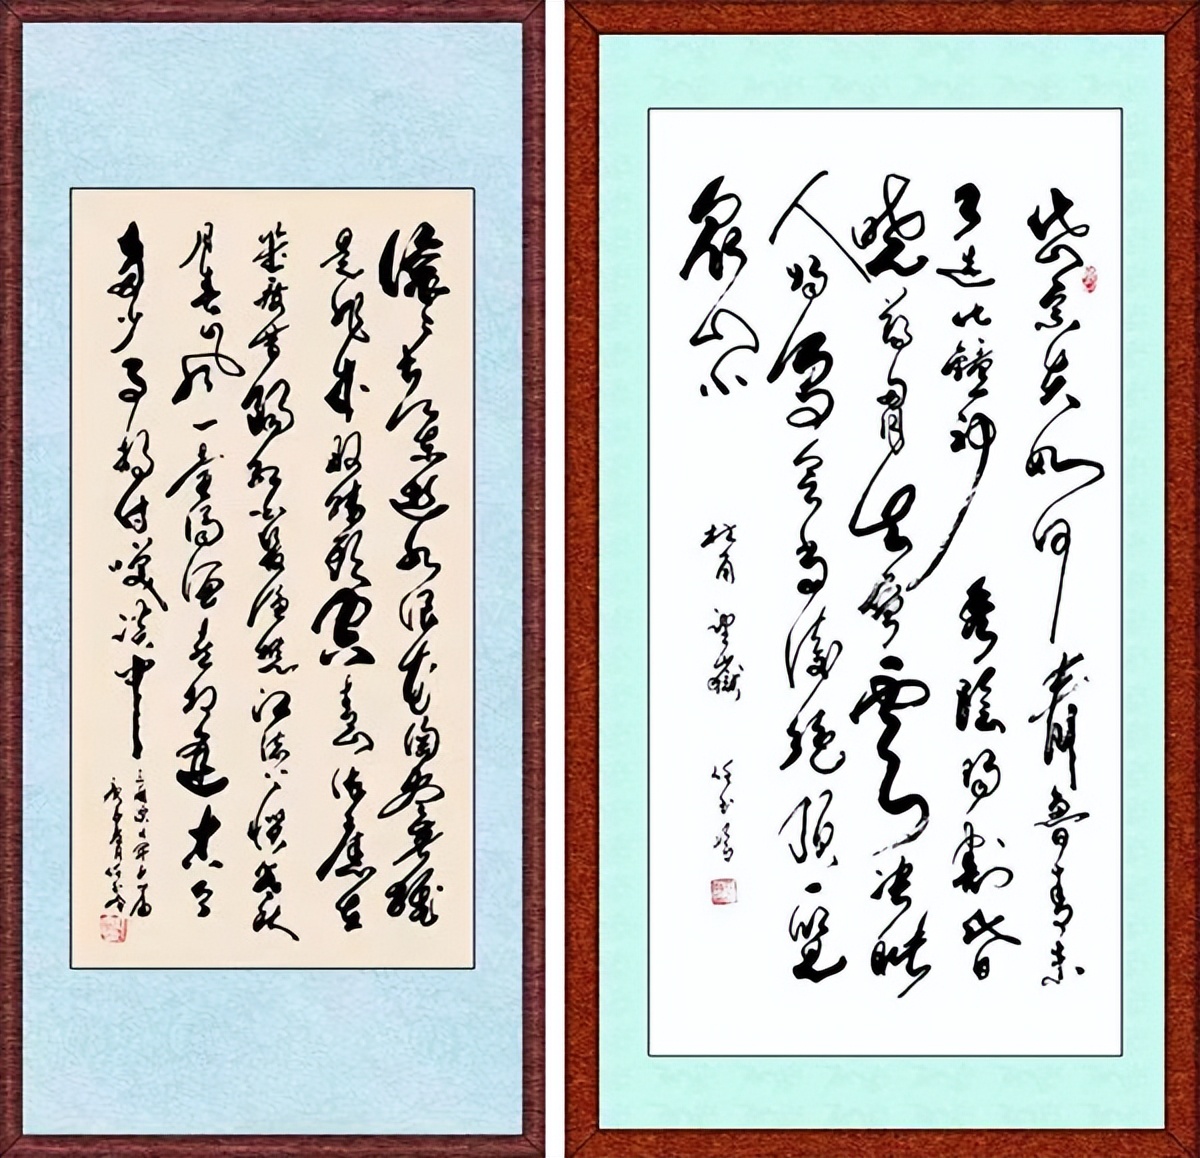 滚々长江东逝水浪花淘尽英雄
是非成败转头空青山依旧在
几度夕阳红白发渔樵江渚上惯看秋
月春风一壶浊酒喜相逢古今
多少事都付笑谈中
岱宗夫如何齊魯青未
了造化鐘神秀陰陽割昏
曉荡胸生層雲决眦
入归鸟会当凌绝顶一览
众山小
杜甫望嶽